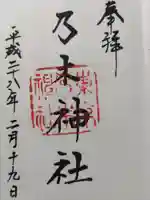 奉拝
乃木神社
平成二十八年二月十九日